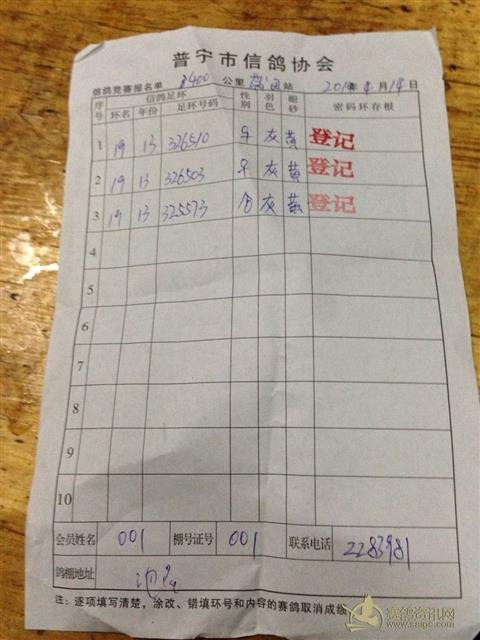 普宁市信鸽协会
信鸽竞赛报名单 400 公里 站 201 年 4 月 14 日
序号 信鸽足环 性别 羽色 眼砂 密码环存根
环名 年份 足环号码
1 19 13 326510 灰 黄 登记
2 19 13 326503 灰 黄 登记
3 19 13 325573 灰 黄 登记
4
5
6
7
8
9
10
会员姓名 001 棚号证号 001 联系电话 2283981
鸽棚地址
注：逐项填写清楚，涂改、错填环号和内容的赛鸽取消成绩
赛鸽资讯网
www.saige.com